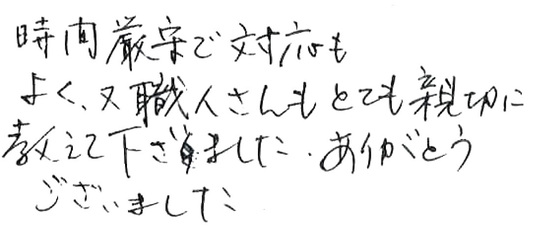 時間厳守で対応も
よく、又職人さんもとても親切に
教えて下さりました。ありがとう
ございました